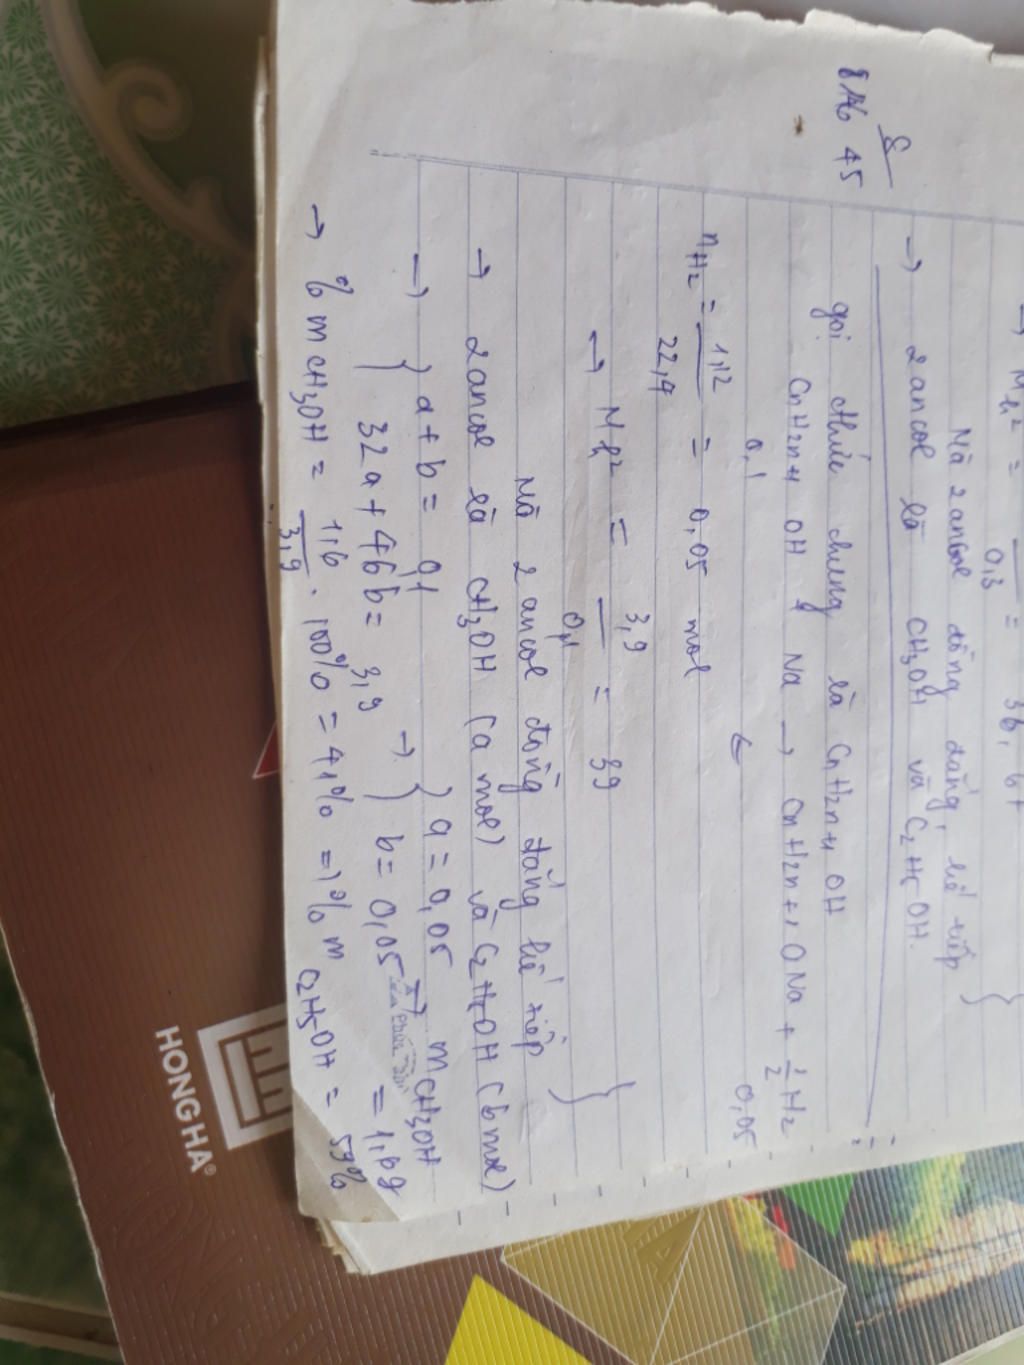 → M hh = ___ = 36,67
0,3
Mà 2 ancol đồng đẳng, kế tiếp }
→ 2 ancol là CH3OH và C2H5OH.
8
Bài 45
gọi thức chung là CnH2n+1 OH
CnH2n+1 OH + Na → CnH2n+1 ONa + 1/2 H2
0,1 ← 0,05
nH2 = 1,12 / 22,4 = 0,05 mol
→ M hh = 3,9 / 0,1 = 39
Mà 2 ancol đồng đẳng kế tiếp }
→ 2 ancol là CH3OH (a mol) và C2H5OH (b mol)
→ { a + b = 0,1 → { a = 0,05 → mCH3OH
{ 32a + 46b = 3,9 { b = 0,05 = 1,6g
→ % m CH3OH = 1,6 / 3,9 . 100% = 41% => % m C2H5OH = 59%
HONG HA®